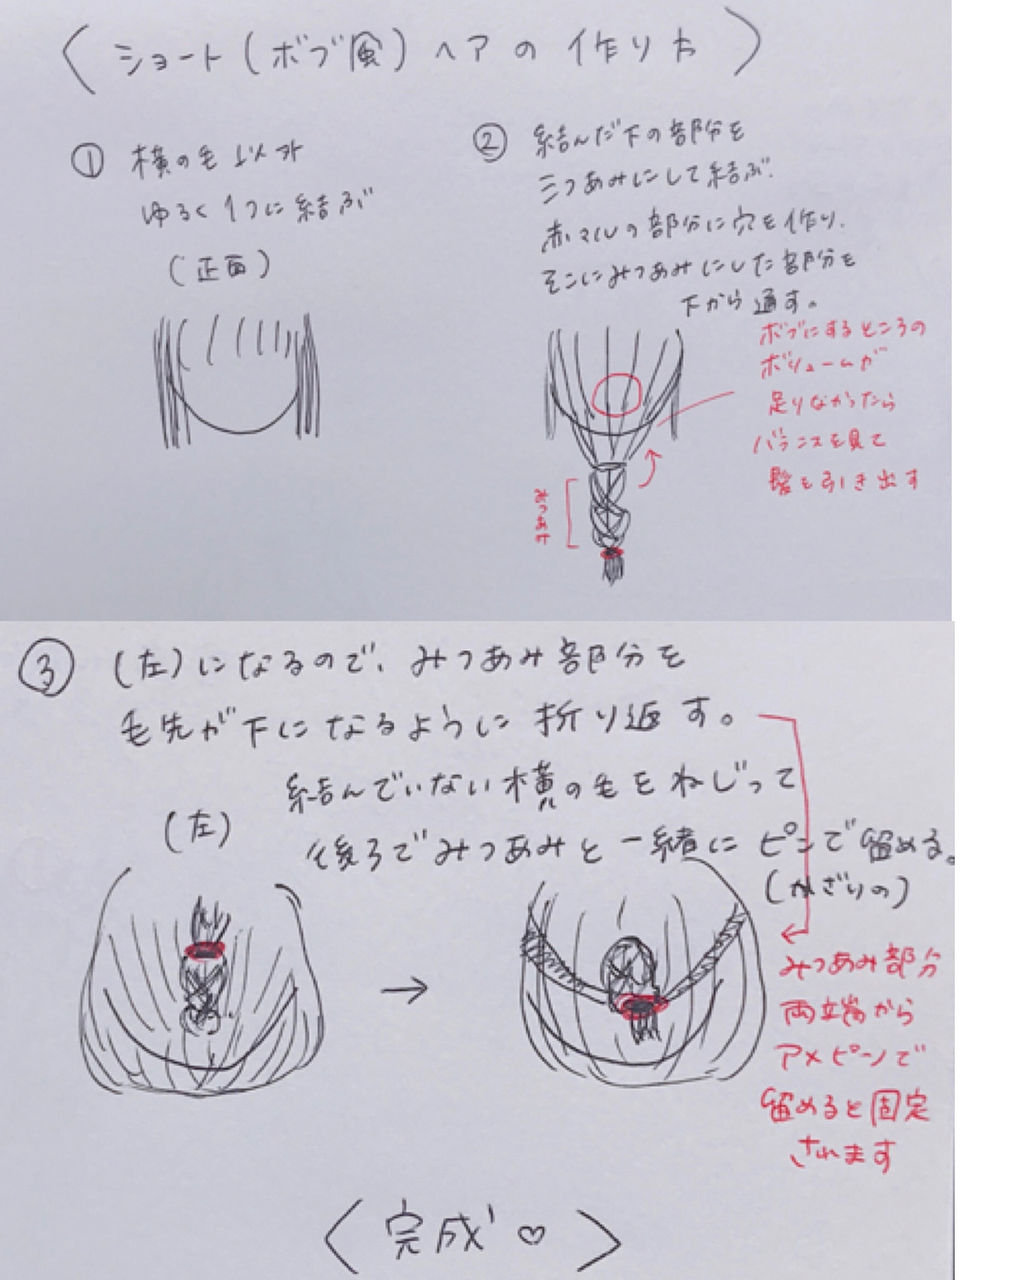 〈ショート(ボブ風)ヘアの作り方〉
① 横の毛以外
ゆるく1つに結ぶ
(正面)
② 結んだ下の部分を
三つあみにして結ぶ。
赤マルの部分に穴を作り、
そこにみつあみにした部分を
下から通す。
ボブにするところの
ボリュームが
足りなかったら
バランスを見て
髪も引き出す
みつあみ
③ (左)になるので、みつあみ部分を
毛先が下になるように折り返す。
結んでいない横の毛をねじって
後ろでみつあみと一緒にピンで留める。
(かざりの)
(左)
→
みつあみ部分
両端から
アメピンで
留めると固定
されます
〈完成!♡〉